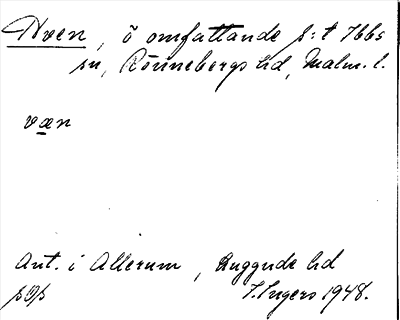 Hven, ö omfattande s:t Ibbs
sn, Rönnebergs hd, Malm. l.
væn
Ant. i Allerum, Luggude hd
I. Ingers 1948.